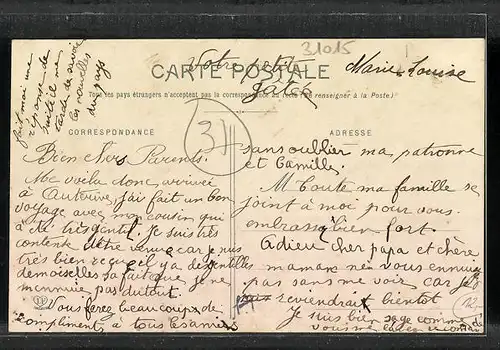 31015
Votre petite
Marie-Louise
CARTE POSTALE
Tous les pays étrangers n'acceptent pas la correspondance au recto (Se renseigner à la Poste.)
fait moi une
réponse de
suite il me
tarde de savoir
les nouvelles
du pays
31
CORRESPONDANCE
Bien Chers Parents.
Me voilà donc arrivée
à Auterive, j'ai fait un bon
voyage avec mon cousin qui
a été très gentil. Je suis très
contente d'être venue car je suis
très bien reçu il y a des gentilles
demoiselles sa fait que je ne
m'ennuie pas du tout.
Vous ferez beaucoup de
compliments à tous les amies
ADRESSE
sans oublier ma patronne
et Camille.
Toute ma famille se
joint à moi pour vous
embrassé bien fort.
Adieu cher papa et chère
maman ne vous ennuyez
pas sans me voir car je
reviendrai bientôt
Je suis bien sage comme
vous me